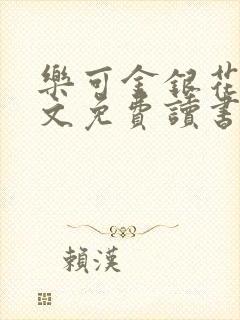 樂可金銀花
文免費讀書
賴漢